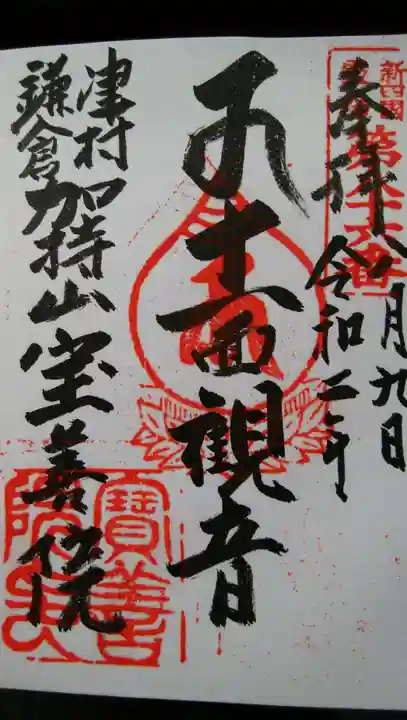 新四国
第八十六番
奉拝
令和二年
八月九日
十一面観音
津村
鎌倉加持山宝善院
寶善
院